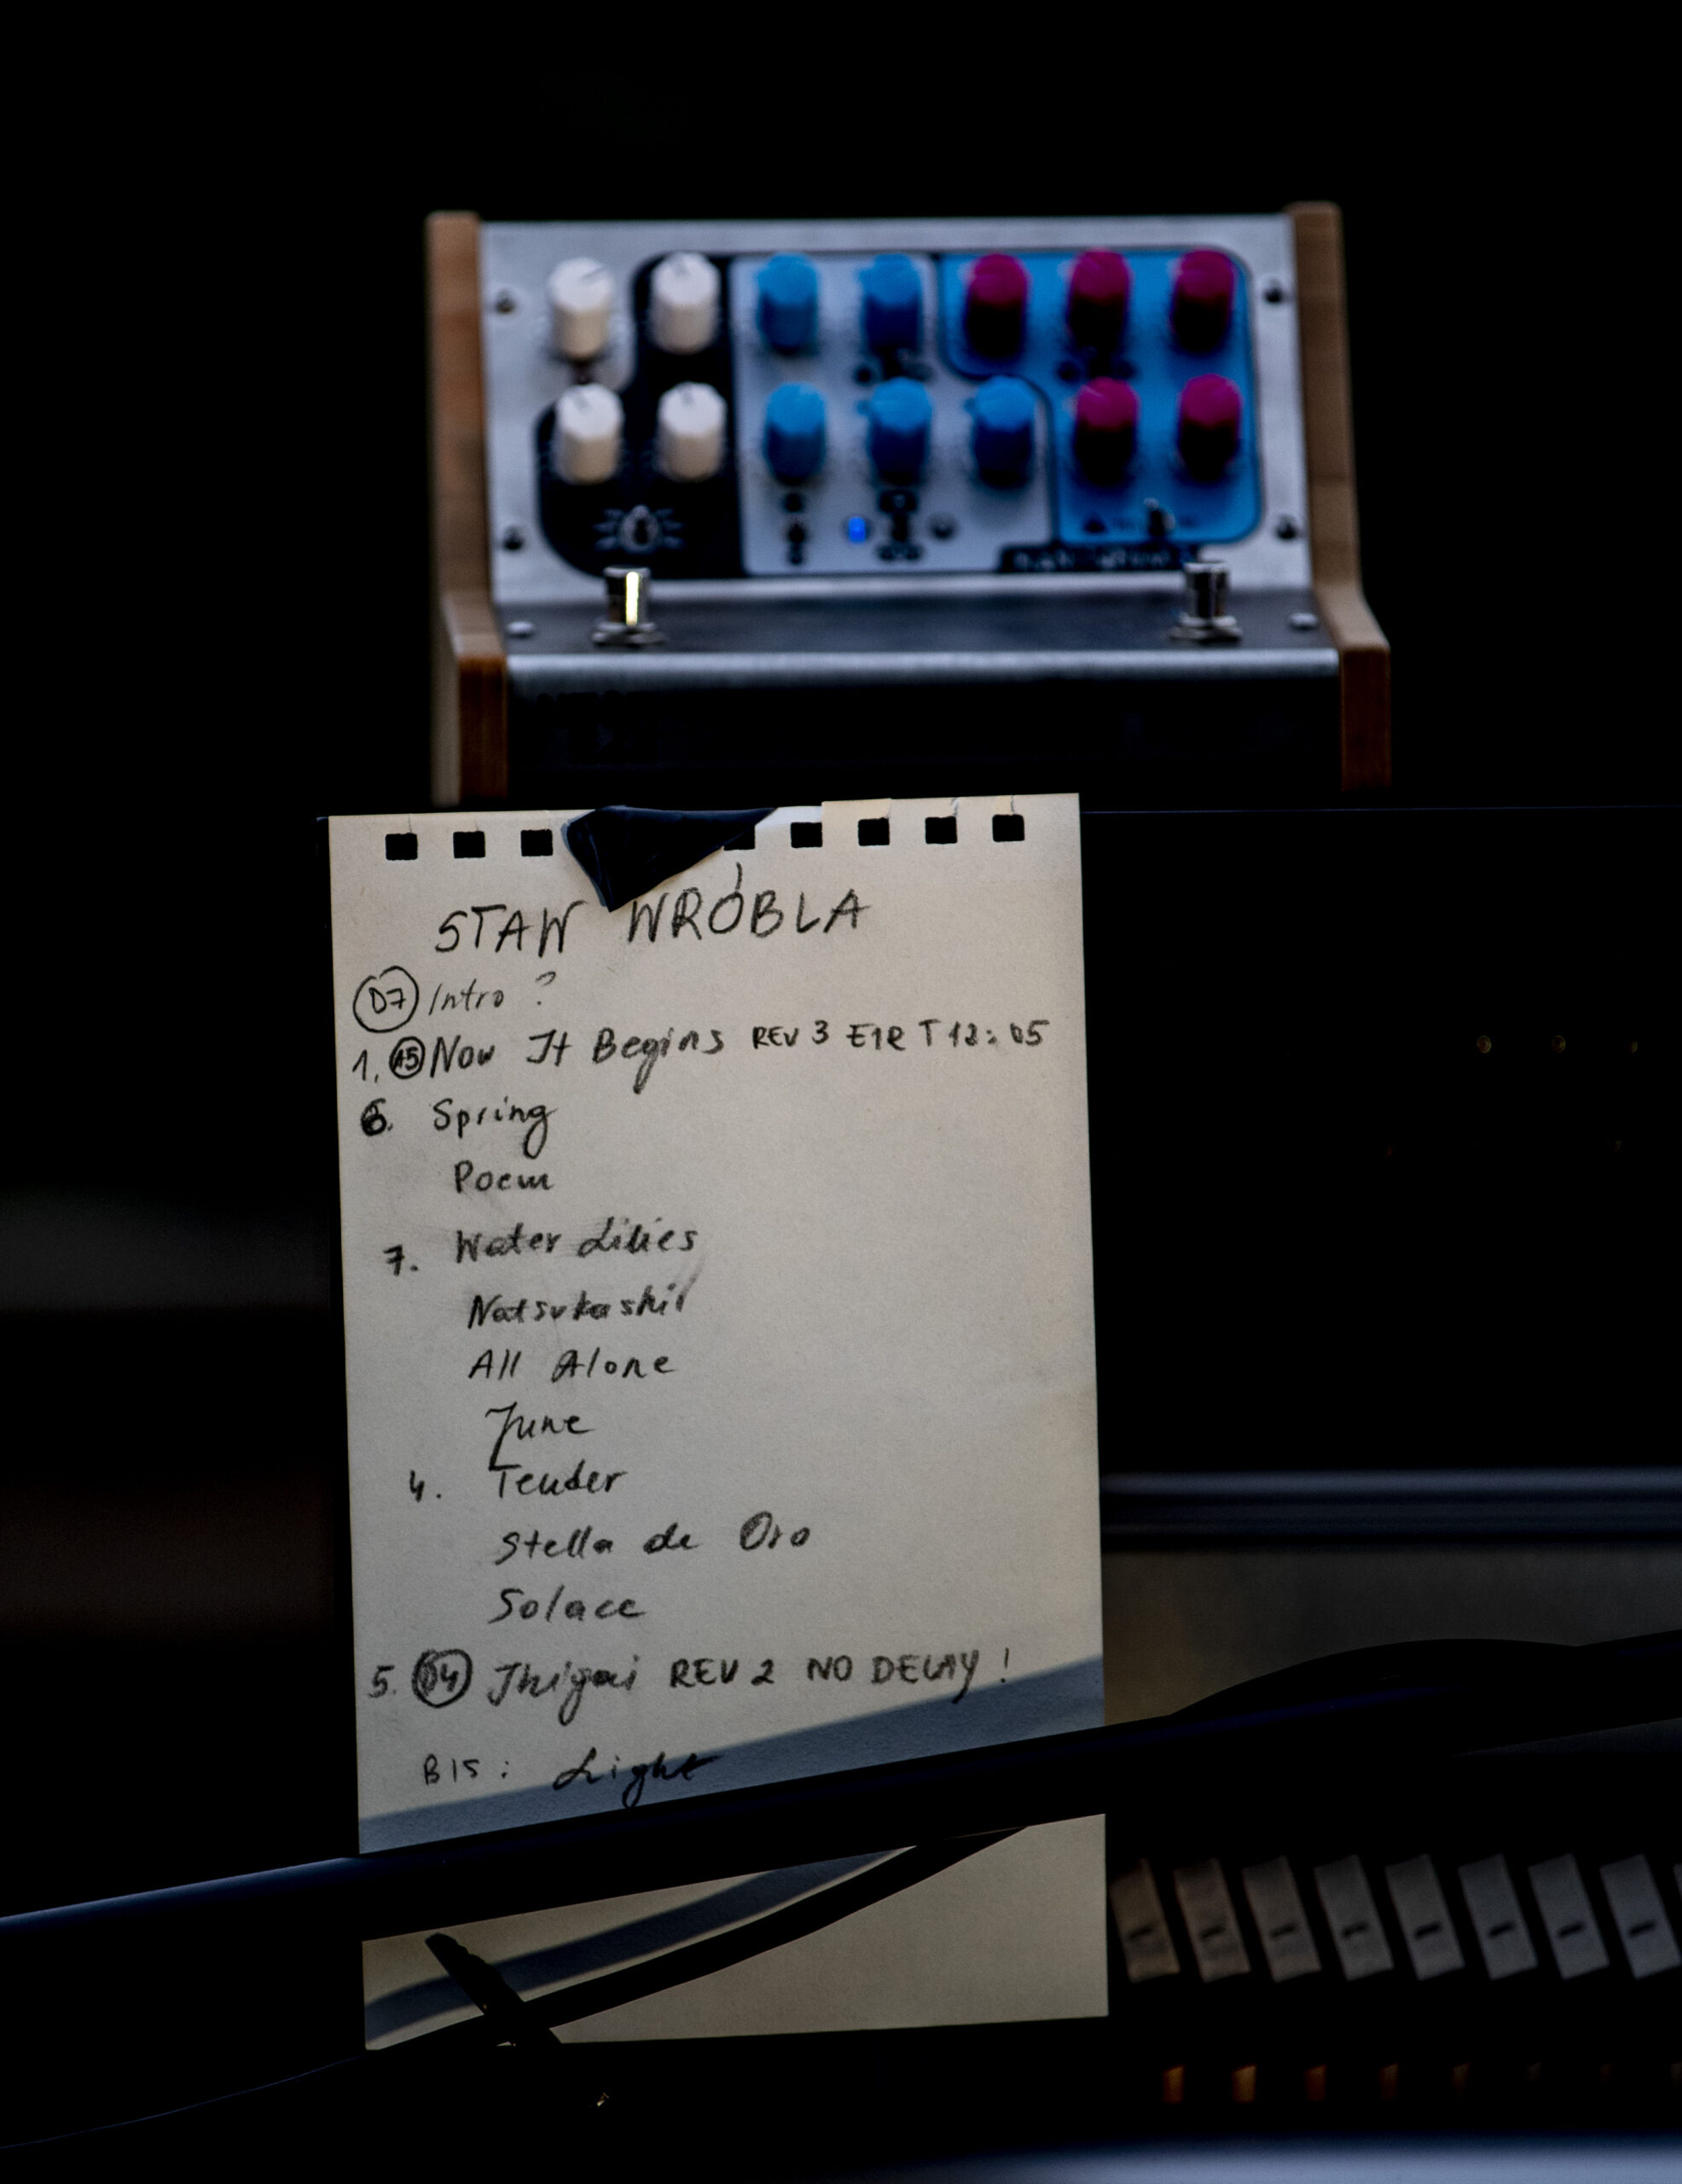 STAW WRÓBLA
D7 Intro ?
1. A5 Now It Begins REV 3 E1R T 12:05
6. Spring
Poem
7. Water Lilies
Natsukashii
All Alone
June
4. Tender
Stella de Oro
Solace
5. D4 Ikigai REV 2 NO DELAY!
BIS: Light